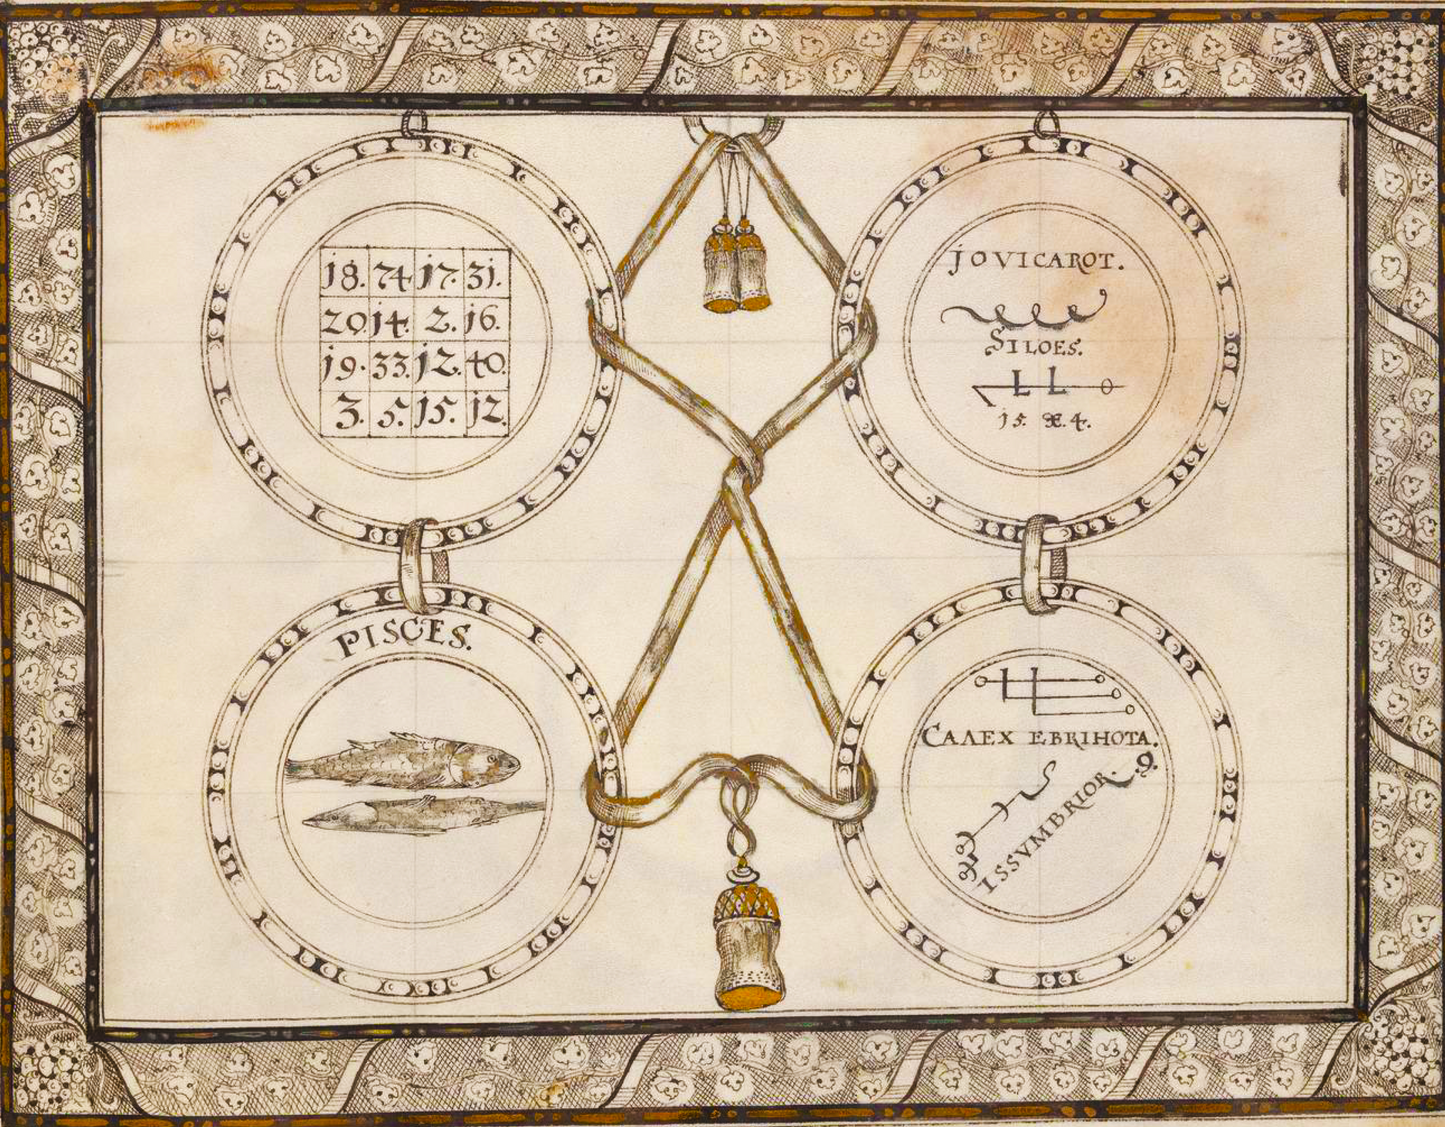 j8. 74 j7. 31.
20 j4. 2. j6.
j9. 33. j2. 40.
3. 5. j5. j2.
jOVICAROT.
SILOES.
j5. æ. 4.
PISCES.
CAΛEX EBRIHOTA.
.9.
ISSVMBRIOR.